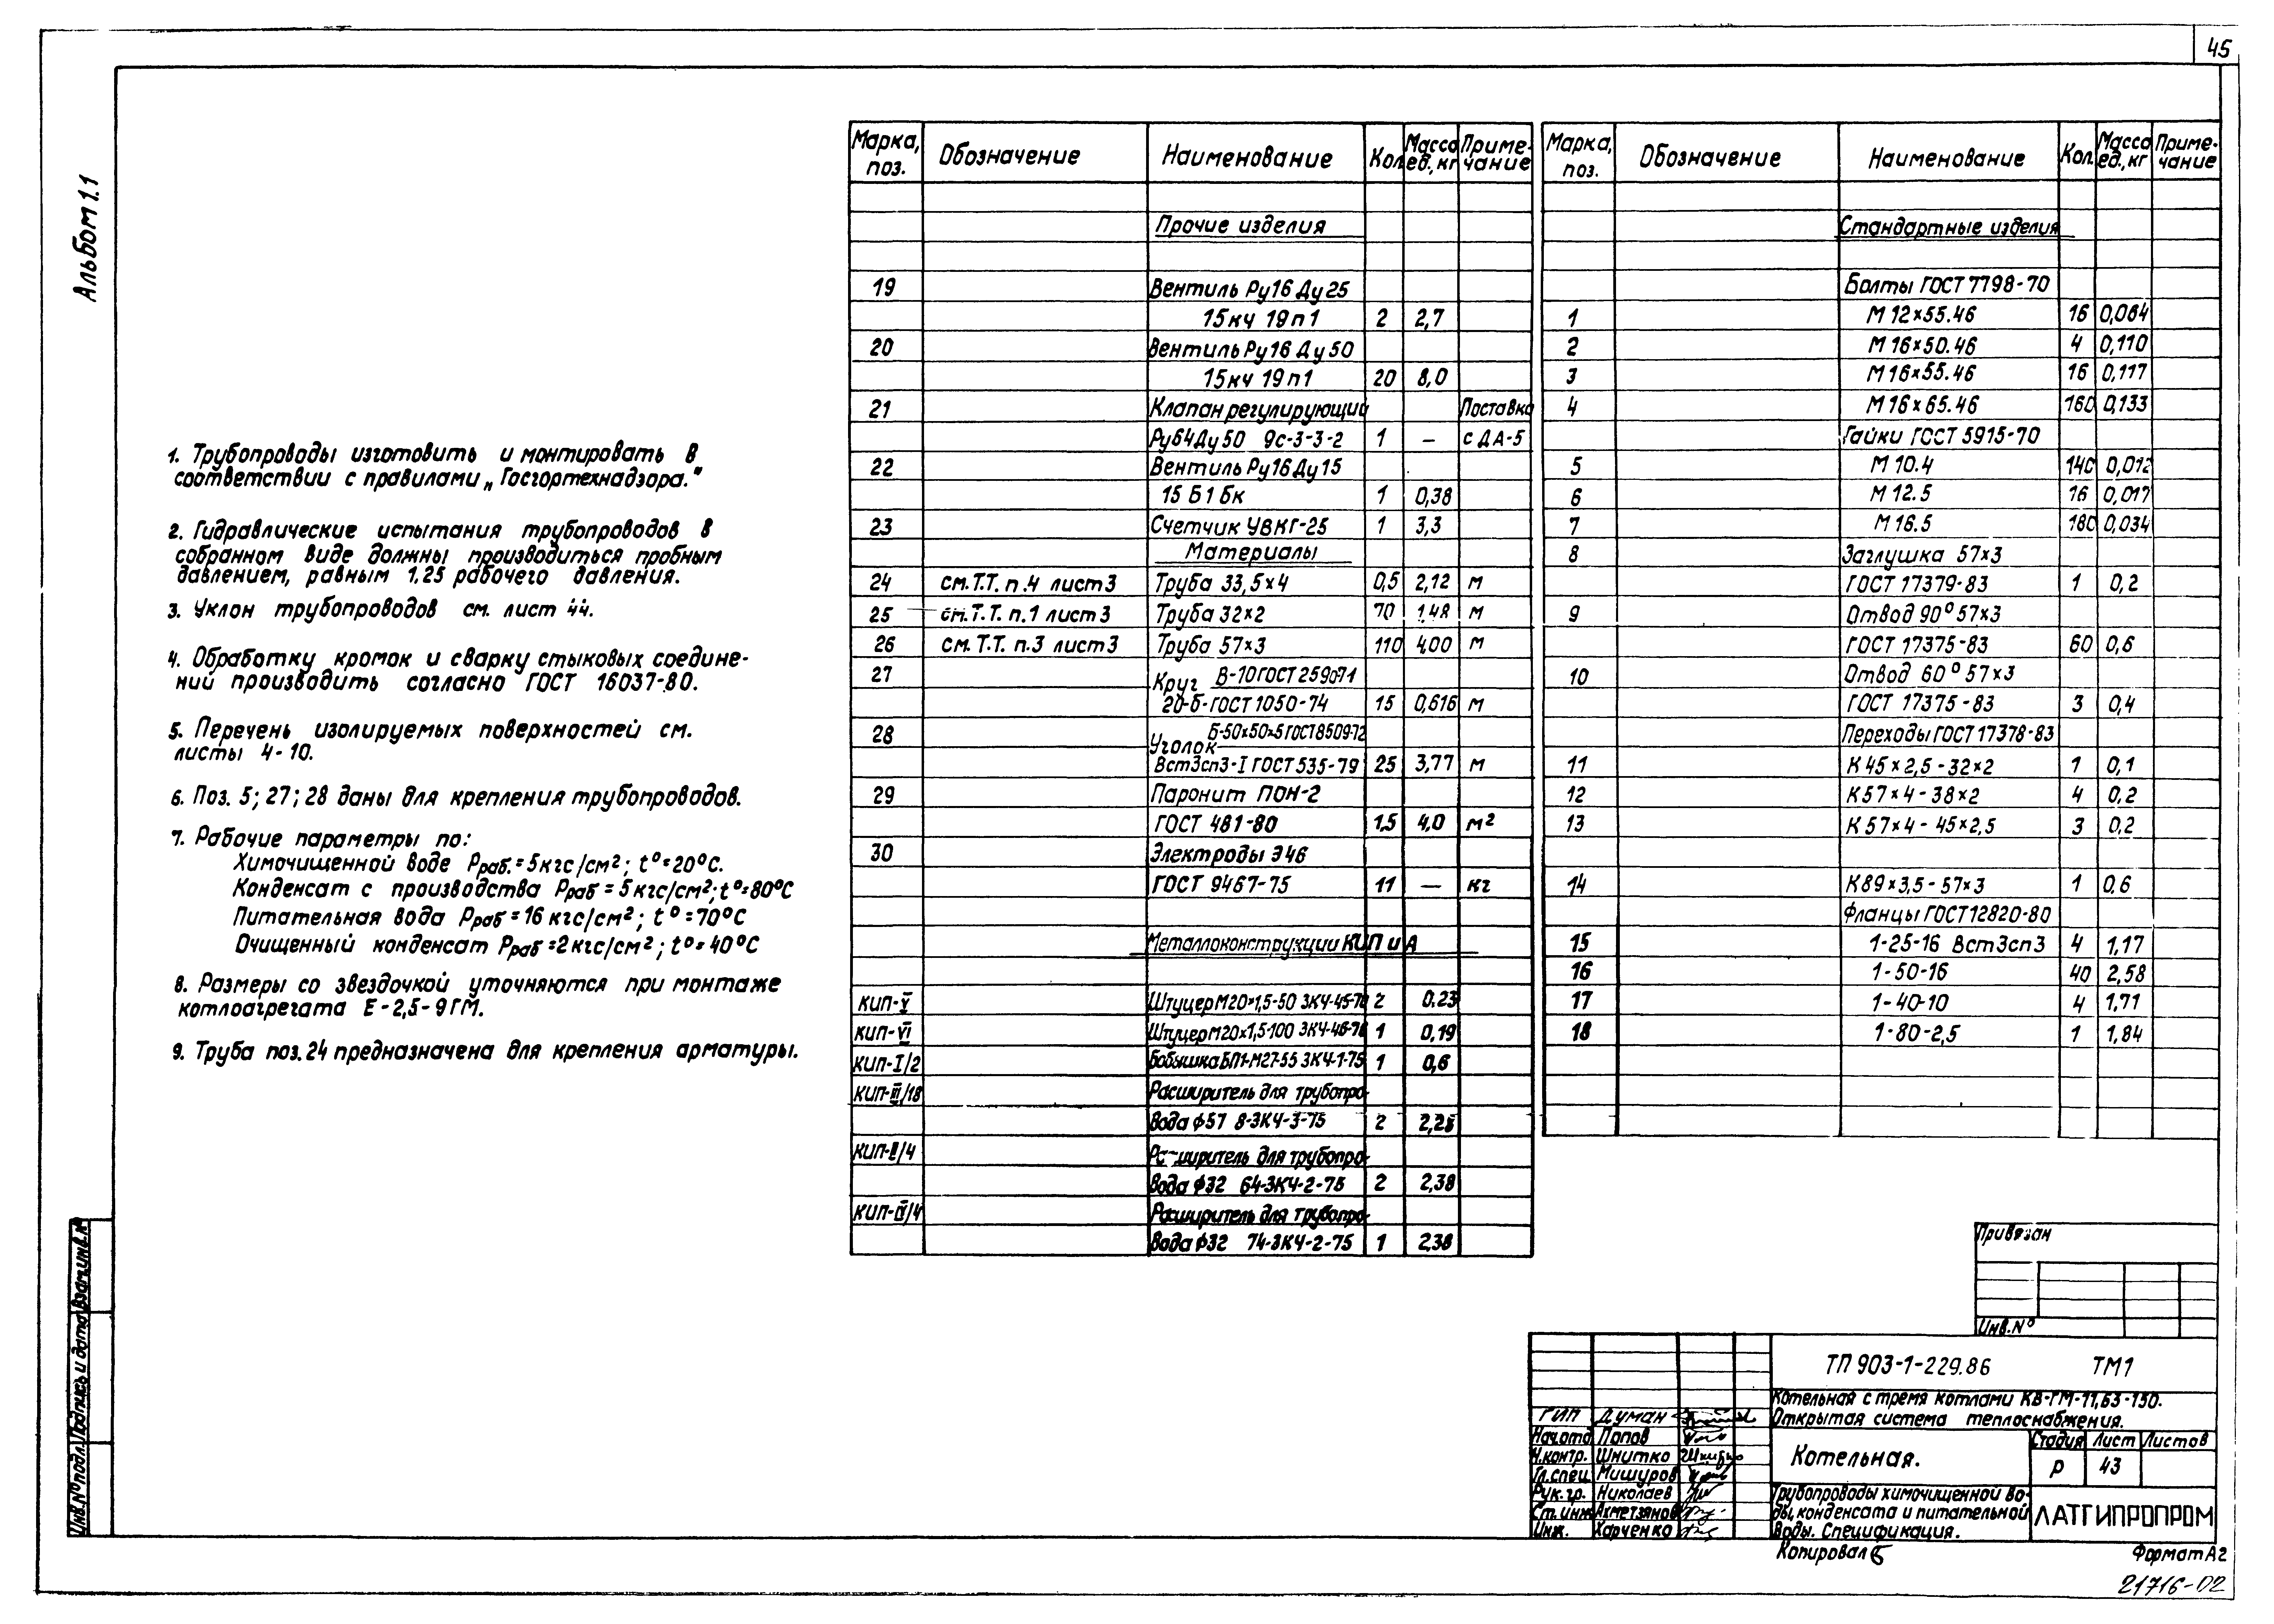 45
Альбом 1.1
1. Трубопроводы изготовить и монтировать в
соответствии с правилами „Госгортехнадзора."
2. Гидравлические испытания трубопроводов в
собранном виде должны производиться пробным
давлением, равным 1,25 рабочего давления.
3. Уклон трубопроводов см. лист 44.
4. Обработку кромок и сварку стыковых соедине-
ний производить согласно ГОСТ 16037-80.
5. Перечень изолируемых поверхностей см.
листы 4-10.
6. Поз. 5; 27; 28 даны для крепления трубопроводов.
7. Рабочие параметры по:
Химочищенной воде Рраб.=5кгс/см²; t°=20°С.
Конденсат с производства Рраб=5кгс/см²; t°=80°С
Питательная вода Рраб=16 кгс/см²; t°=70°С
Очищенный конденсат Рраб=2кгс/см²; t°=40°С
8. Размеры со звездочкой уточняются при монтаже
котлоагрегата Е-2,5-9ГМ.
9. Труба поз. 24 предназначена для крепления арматуры.
Марка, поз. Обозначение Наименование Кол. Масса ед., кг Приме-чание
Прочие изделия
19 Вентиль Ру16 Ду25
15кч 19п1 2 2,7
20 Вентиль Ру16 Ду50
15кч 19п1 20 8,0
21 Клапан регулирующий Поставка
Ру64Ду50 9с-3-3-2 1 — с ДА-5
22 Вентиль Ру16Ду15
15 Б1 бк 1 0,38
23 Счетчик УВКГ-25 1 3,3
Материалы
24 см.Т.Т. п.4 лист3 Труба 33,5×4 0,5 2,12 м
25 см.Т.Т. п.1 лист3 Труба 32×2 70 1,48 м
26 см.Т.Т. п.3 лист3 Труба 57×3 110 4,00 м
27 Круг В-10 ГОСТ 2590-71
20-б-ГОСТ 1050-74 15 0,616 м
28 Уголок Б-50×50×5 ГОСТ 8509-72
Вст3сп3-I ГОСТ 535-79 25 3,77 м
29 Паронит ПОН-2
ГОСТ 481-80 1,5 4,0 м²
30 Электроды Э46
ГОСТ 9467-75 11 — кг
Металлоконструкции КИП и А
КИП-V Штуцер М20×1,5-50 ЗКЧ-45-70 2 0,23
КИП-VI Штуцер М20×1,5-100 ЗКЧ-46-76 1 0,19
КИП-I/2 Бобышка БП1-М27-55 ЗКЧ-1-75 1 0,6
КИП-III/18 Расширитель для трубопро-
вода ф57 8-ЗКЧ-3-75 2 2,25
КИП-II/4 Расширитель для трубопро-
вода ф32 64-ЗКЧ-2-75 2 2,38
Расширитель для трубопро-
вода ф32 74-ЗКЧ-2-75 1 2,38
Марка, поз. Обозначение Наименование Кол. Масса ед., кг Приме-чание
Стандартные изделия
Болты ГОСТ 7798-70
1 М 12×55.46 16 0,064
2 М 16×50.46 4 0,110
3 М 16×55.46 16 0,117
4 М 16×65.46 160 0,133
Гайки ГОСТ 5915-70
5 М 10.4 140 0,012
6 М 12.5 16 0,017
7 М 16.5 180 0,034
8 Заглушка 57×3
ГОСТ 17379-83 1 0,2
9 Отвод 90° 57×3
ГОСТ 17375-83 60 0,6
10 Отвод 60° 57×3
ГОСТ 17375-83 3 0,4
Переходы ГОСТ 17378-83
11 К 45×2,5-32×2 1 0,1
12 К57×4-38×2 4 0,2
13 К 57×4-45×2,5 3 0,2
14 К89×3,5-57×3 1 0,6
Фланцы ГОСТ 12820-80
15 1-25-16 Вст3сп3 4 1,17
16 1-50-16 40 2,58
17 1-40-10 4 1,71
18 1-80-2,5 1 1,84
Привязан
Инв.№
ТП 903-1-229.86 ТМ1
Котельная с тремя котлами КВ-ГМ-11,63-150.
Открытая система теплоснабжения.
ГИП Думан
Нач.отд Попов
Н.контр. Шнитко
Гл.спец Мишуров
Рук.гр. Николаев
Ст.инж Ахметзянов
Инж. Харченко
Котельная.
Стадия Лист Листов
Р 43
Трубопроводы химочищенной во-
ды, конденсата и питательной
воды. Спецификация.
ЛАТГИПРОПРОМ
Копировал
Формат А2
21716-02
Инв.№подл. Подпись и дата Взам.инв.№